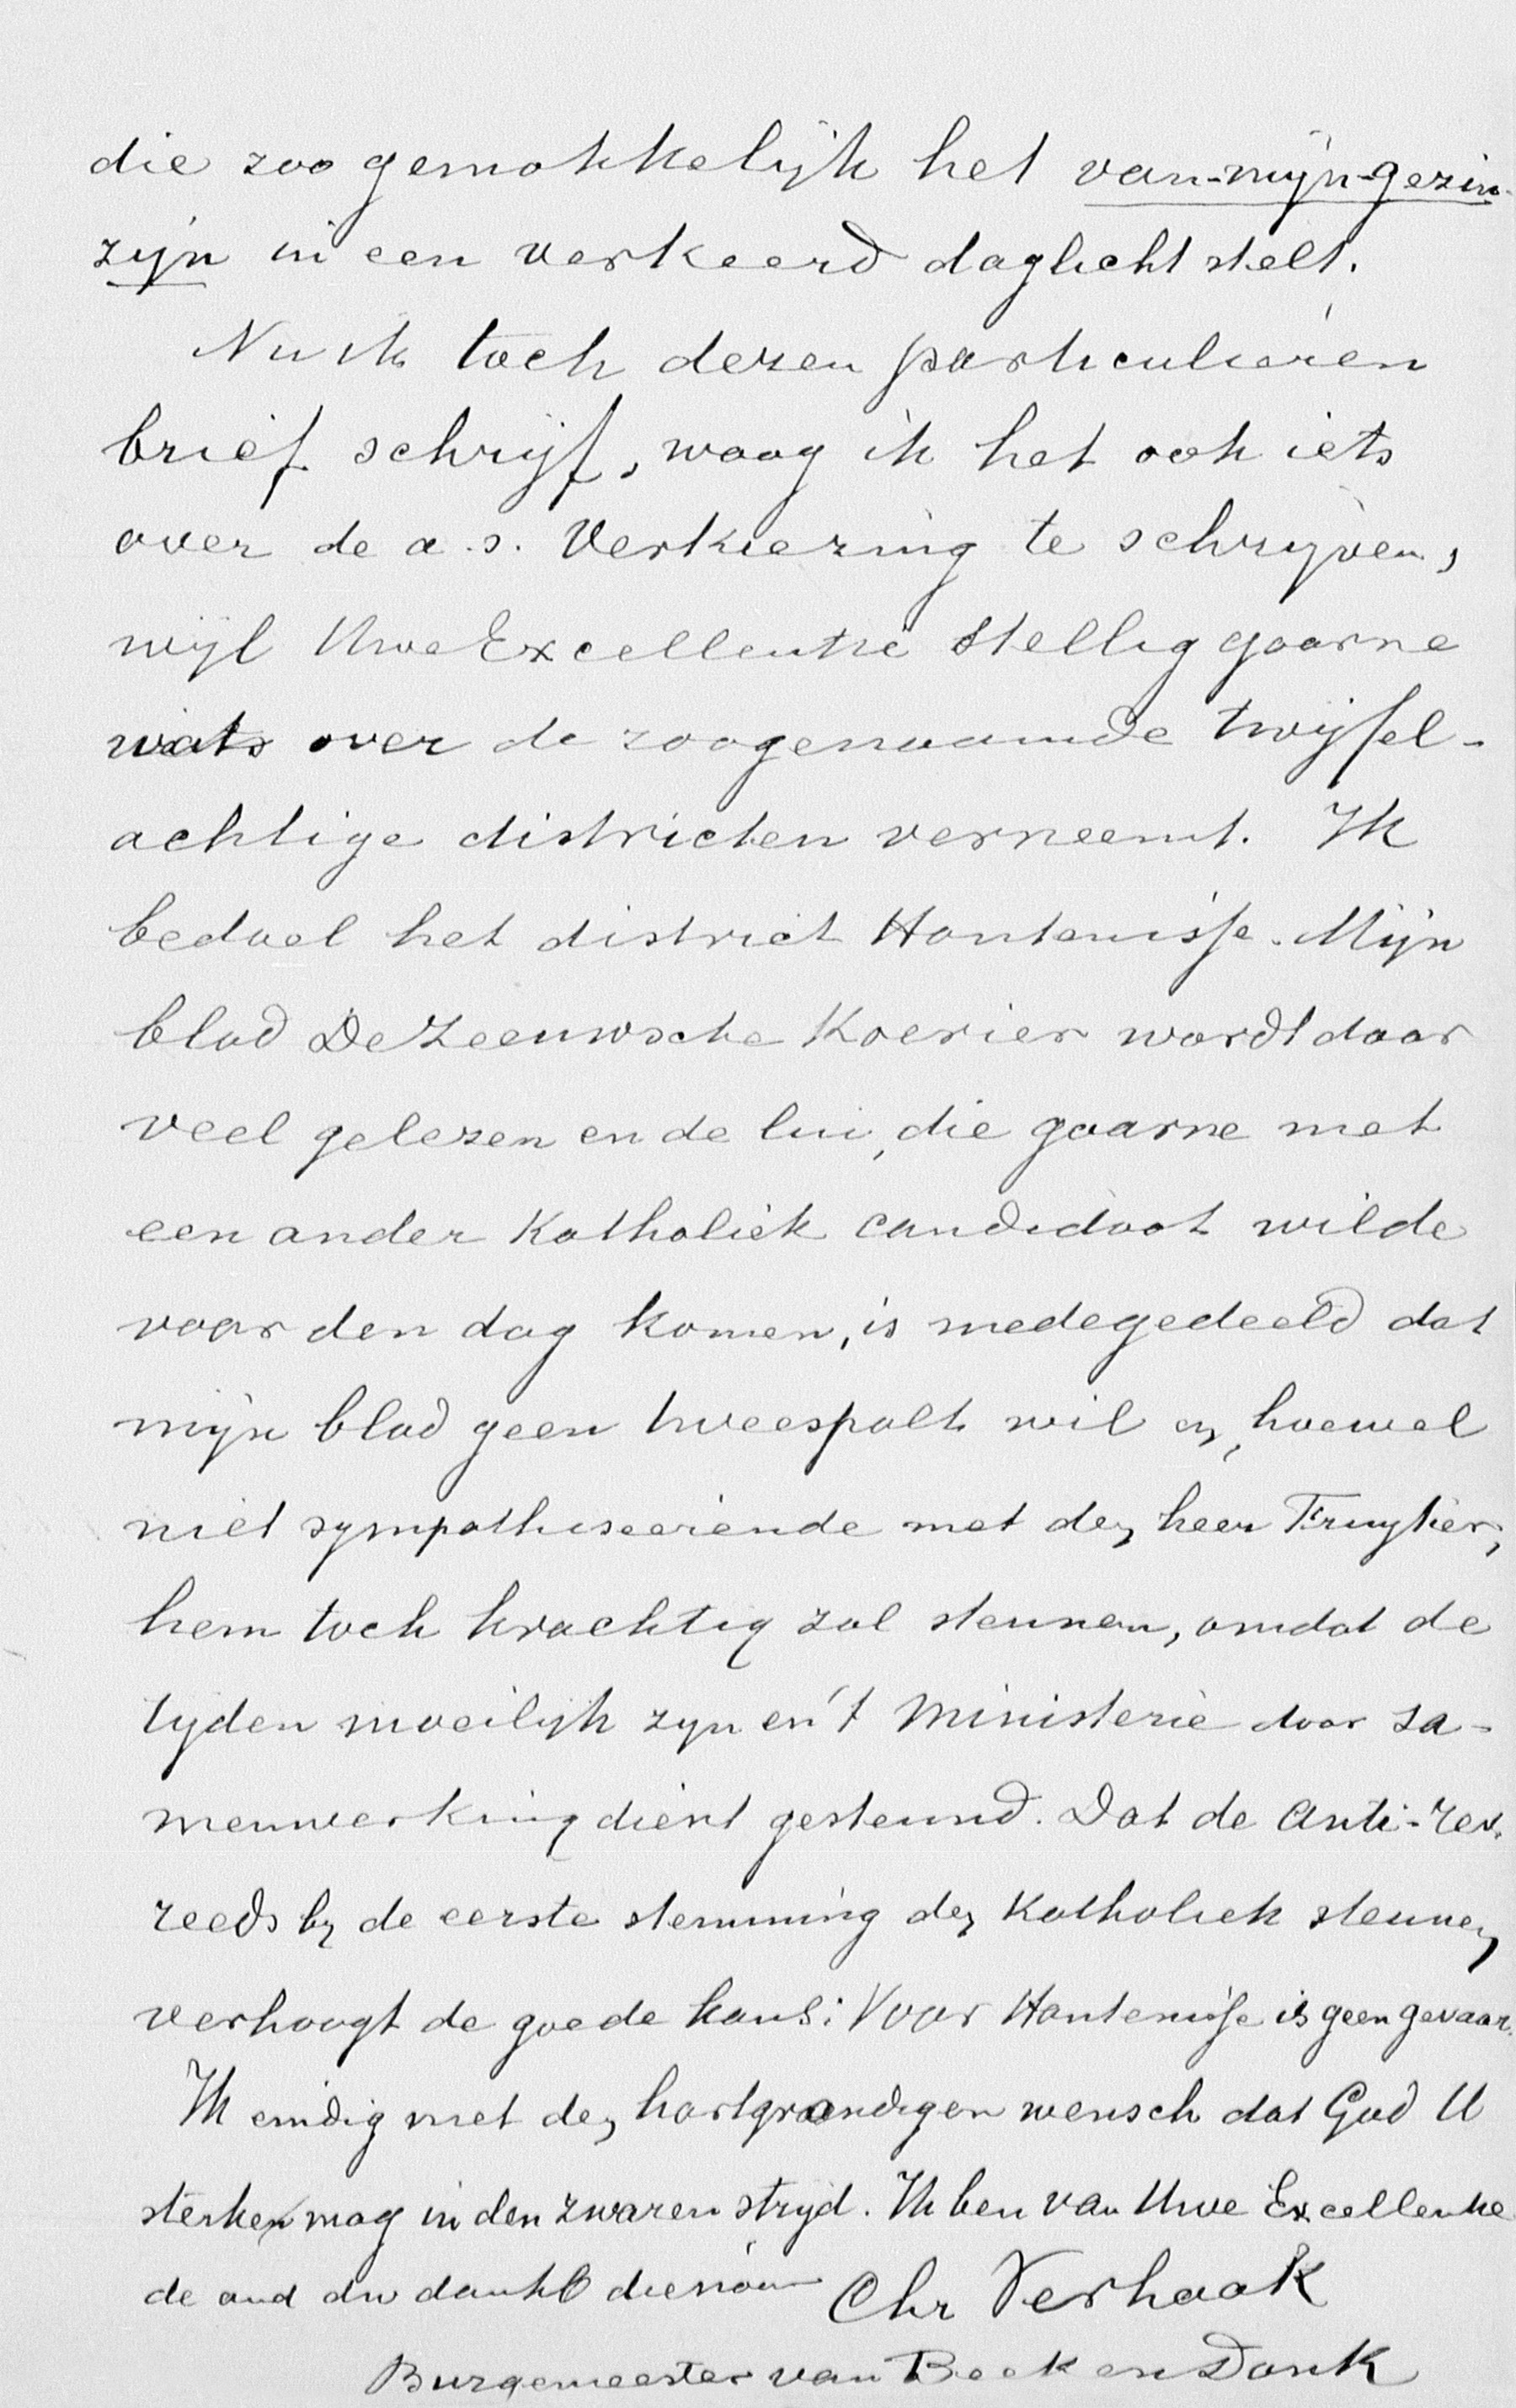 die zoo gemakkelijk het van-mijn-gezin-
zijn in een verkeerd daglicht stelt.
Nu ik toch dezen particulieren
brief schrijf, waag ik het ook iets
over de a.s. Verkiezing te schrijven,
wijl Uwe Excellentie stellig gaarne
wats over de zoogenaamde twijfel-
achtige districten verneemt. Ik
bedoel het district Hontenisse. Mijn
blad De Zeeuwsche Koerier wordt daar
veel gelezen en de lui, die gaarne met
een ander Katholiek candidaat wilde
voor den dag komen, is medegedeeld dat
mijn blad geen tweespalt wil en, hoewel
niet sympathiseerende met den heer Fruytier,
hem toch krachtig zal steunen, omdat de
tijden moeilijk zijn en 't Ministerie door sa-
menwerking dient gesteund. Dat de Anti-rev.
reeds bij de eerste stemming den Katholiek steunen
verhoogt de goede kans: Voor Hontenisse is geen gevaar.
Ik eindig met den hartgrondigen wensch dat God U
sterken mag in den zwaren strijd. Ik ben van Uwe Excellentie
de dienaar Chr Verhaak
Burgemeester van Beek en Donk